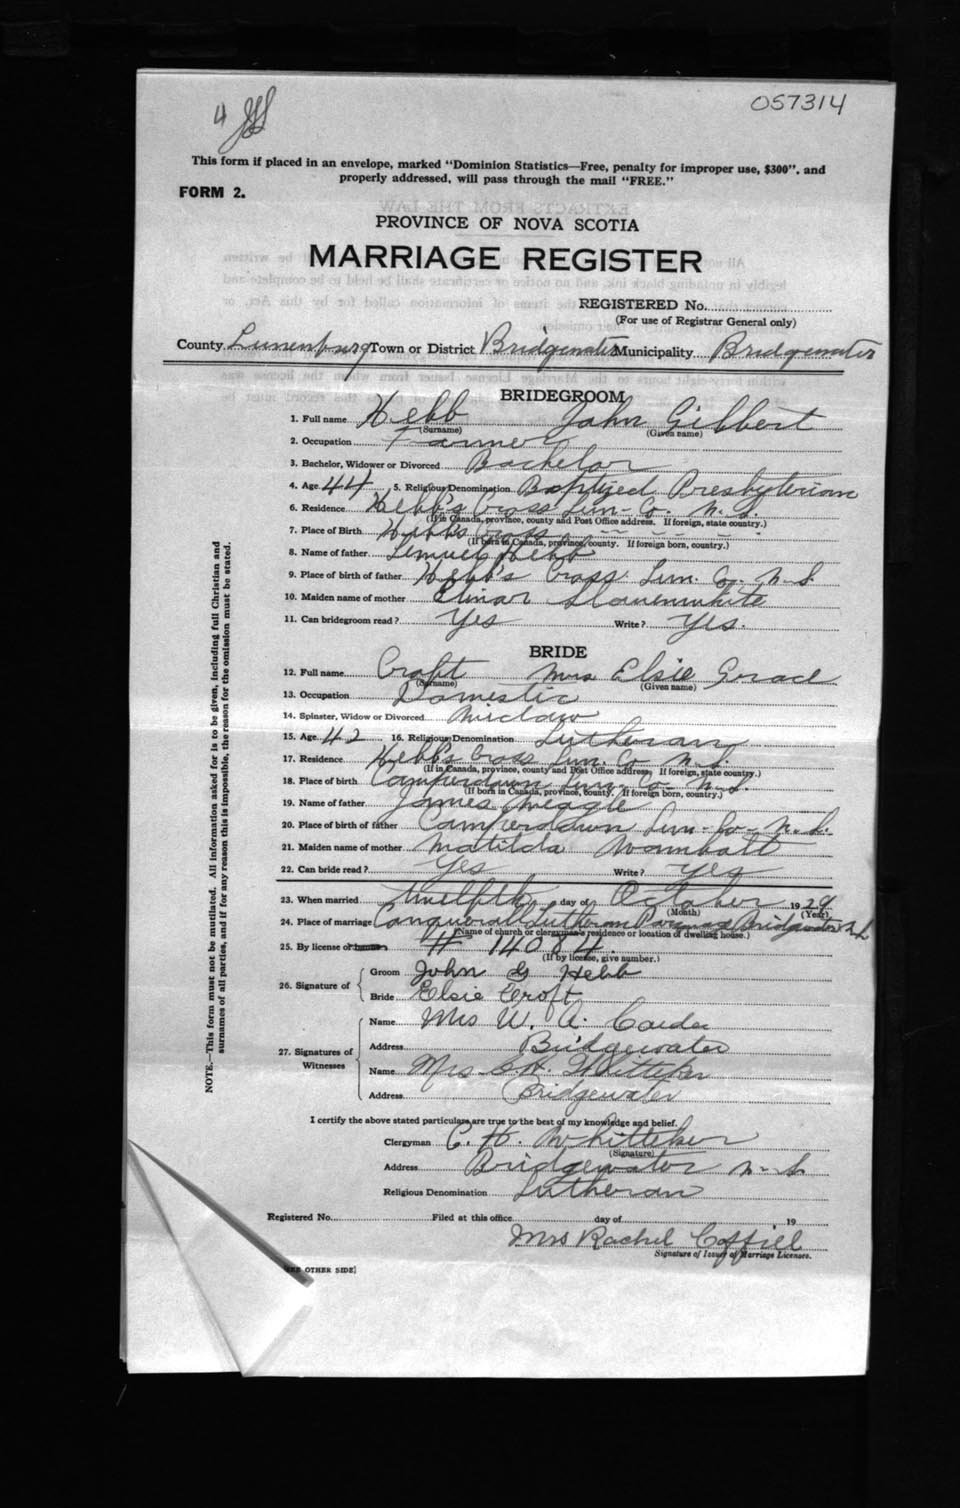 4
057314
This form if placed in an envelope, marked "Dominion Statistics—Free, penalty for improper use, $300", and
properly addressed, will pass through the mail "FREE."
FORM 2.
PROVINCE OF NOVA SCOTIA
MARRIAGE REGISTER
REGISTERED No.
(For use of Registrar General only)
County Lunenburg Town or District Bridgewater Municipality Bridgewater
BRIDEGROOM
1. Full name Hebb John Gilbert
(Surname) (Given name)
2. Occupation Farmer
3. Bachelor, Widower or Divorced Bachelor
4. Age 44 5. Religious Denomination Baptized Presbyterian
6. Residence Hebb's Cross Lun- Co. N.S.
(If in Canada, province, county and Post Office address. If foreign, state country.)
7. Place of Birth Hebb's Cross
(If born in Canada, province, county. If foreign born, country.)
8. Name of father Lemuel Hebb
9. Place of birth of father Hebb's Cross Lun. Co. N.S.
10. Maiden name of mother Elinor Slauenwhite
11. Can bridegroom read? Yes Write? Yes.
BRIDE
12. Full name Croft Mrs Elsie Grace
(Surname) (Given name)
13. Occupation Domestic
14. Spinster, Widow or Divorced Widow
15. Age 42 16. Religious Denomination Lutheran
17. Residence Hebb's Cross Lun. Co N.S.
(If in Canada, province, county and Post Office address. If foreign, state country.)
18. Place of birth Camperdown Lun- Co- N.S.
(If born in Canada, province, county. If foreign born, country.)
19. Name of father James Weagle
20. Place of birth of father Camperdown Lun- Co- N.S.
21. Maiden name of mother Matilda Wambolt
22. Can bride read? Yes Write? Yes
23. When married Twelfth day of October 1929
(Month) (Year)
24. Place of marriage Conquerall Lutheran Parsonage Bridgewater N.S.
(Name of church or clergyman's residence or location of dwelling house.)
25. By license or banns # 14084
(If by license, give number.)
26. Signature of Groom John G Hebb
Bride Elsie Croft
27. Signatures of Witnesses Name Mrs W. A. Corder
Address Bridgewater
Name Mrs C. H. Whitteker
Address Bridgewater
I certify the above stated particulars are true to the best of my knowledge and belief.
Clergyman C. H. Whitteker
(Signature)
Address Bridgewater N.S.
Religious Denomination Lutheran
Registered No. Filed at this office day of 19
Mrs Rachel Coffill
Signature of Issuer of Marriage Licenses.
OTHER SIDE]
NOTE.—This form must not be mutilated. All information asked for is to be given, including full Christian and
surnames of all parties, and if for any reason this is impossible, the reason for the omission must be stated.